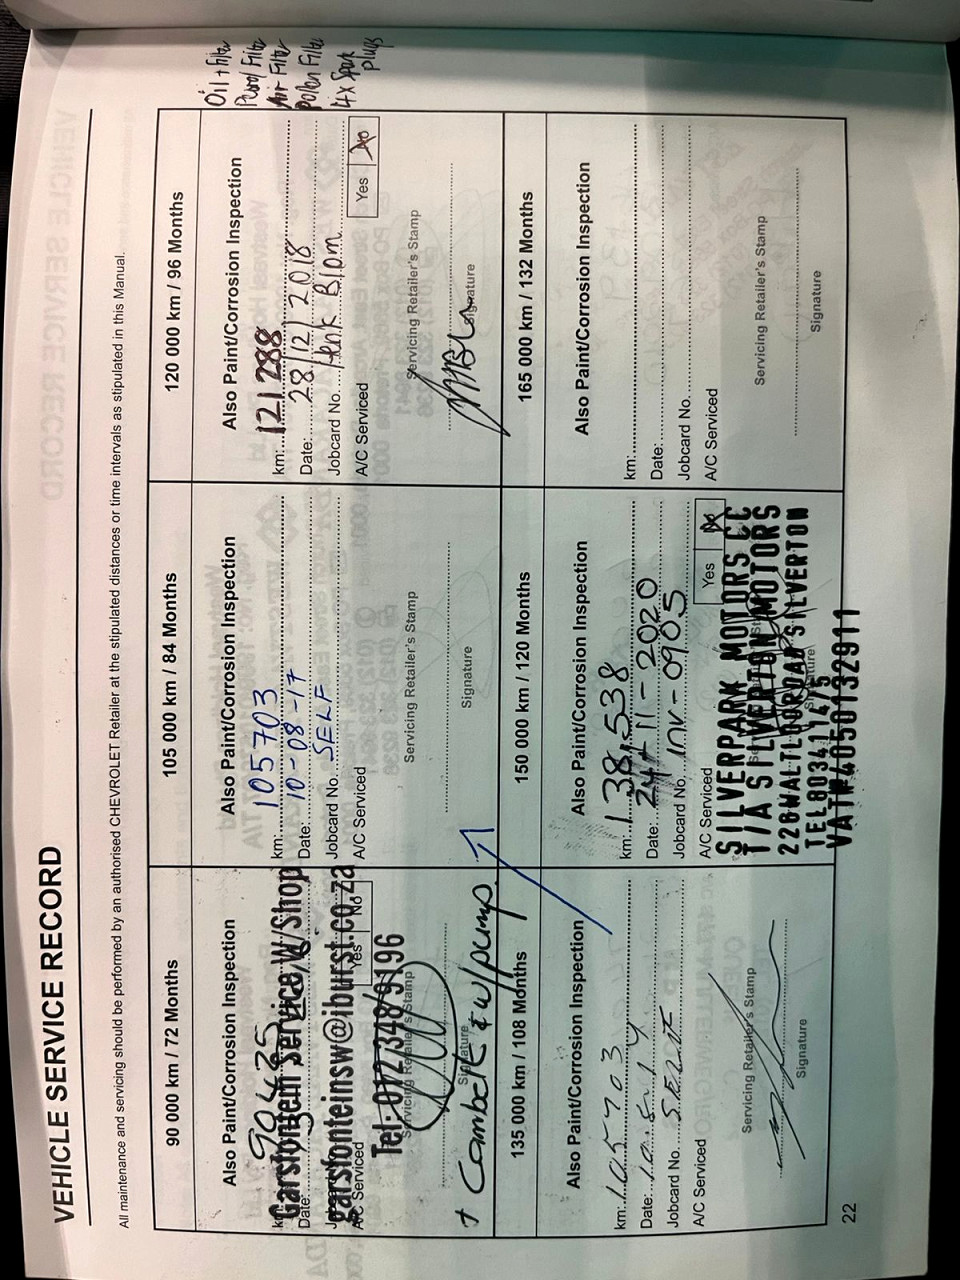 VEHICLE SERVICE RECORD
All maintenance and servicing should be performed by an authorised CHEVROLET Retailer at the stipulated distances or time intervals as stipulated in this Manual.
90 000 km / 72 Months
Also Paint/Corrosion Inspection
km:
Date:
Garstonfein Service W/Shop
garstonteinsw@iburst.co.za
A/C Serviced
Yes No
Tel: 012 348 9196
Servicing Retailer's Stamp
Signature
+ Cambelt & w/pump
105 000 km / 84 Months
Also Paint/Corrosion Inspection
km: 105703
Date: 10-08-17
Jobcard No. SELF
A/C Serviced
Servicing Retailer's Stamp
Signature
120 000 km / 96 Months
Also Paint/Corrosion Inspection
km: 121 288
Date: 28/12/2018
Jobcard No. Henk Blom
A/C Serviced
Yes No
Servicing Retailer's Stamp
Signature
Oil + Filter
Air Filter
pollen Filter
4x Spark
plugs
135 000 km / 108 Months
Also Paint/Corrosion Inspection
km: 105703
Date:
Jobcard No. SELF
A/C Serviced
Servicing Retailer's Stamp
Signature
150 000 km / 120 Months
Also Paint/Corrosion Inspection
km: 138,538
Date: 24-11-2020
Jobcard No. INV-0905
A/C Serviced
Yes No
SILVERPARK MOTORS CC
T/A SILVERTON MOTORS
SILVERTON
TEL8034114/5
VAT#4050132911
165 000 km / 132 Months
Also Paint/Corrosion Inspection
km:
Date:
Jobcard No.
A/C Serviced
Servicing Retailer's Stamp
Signature
22